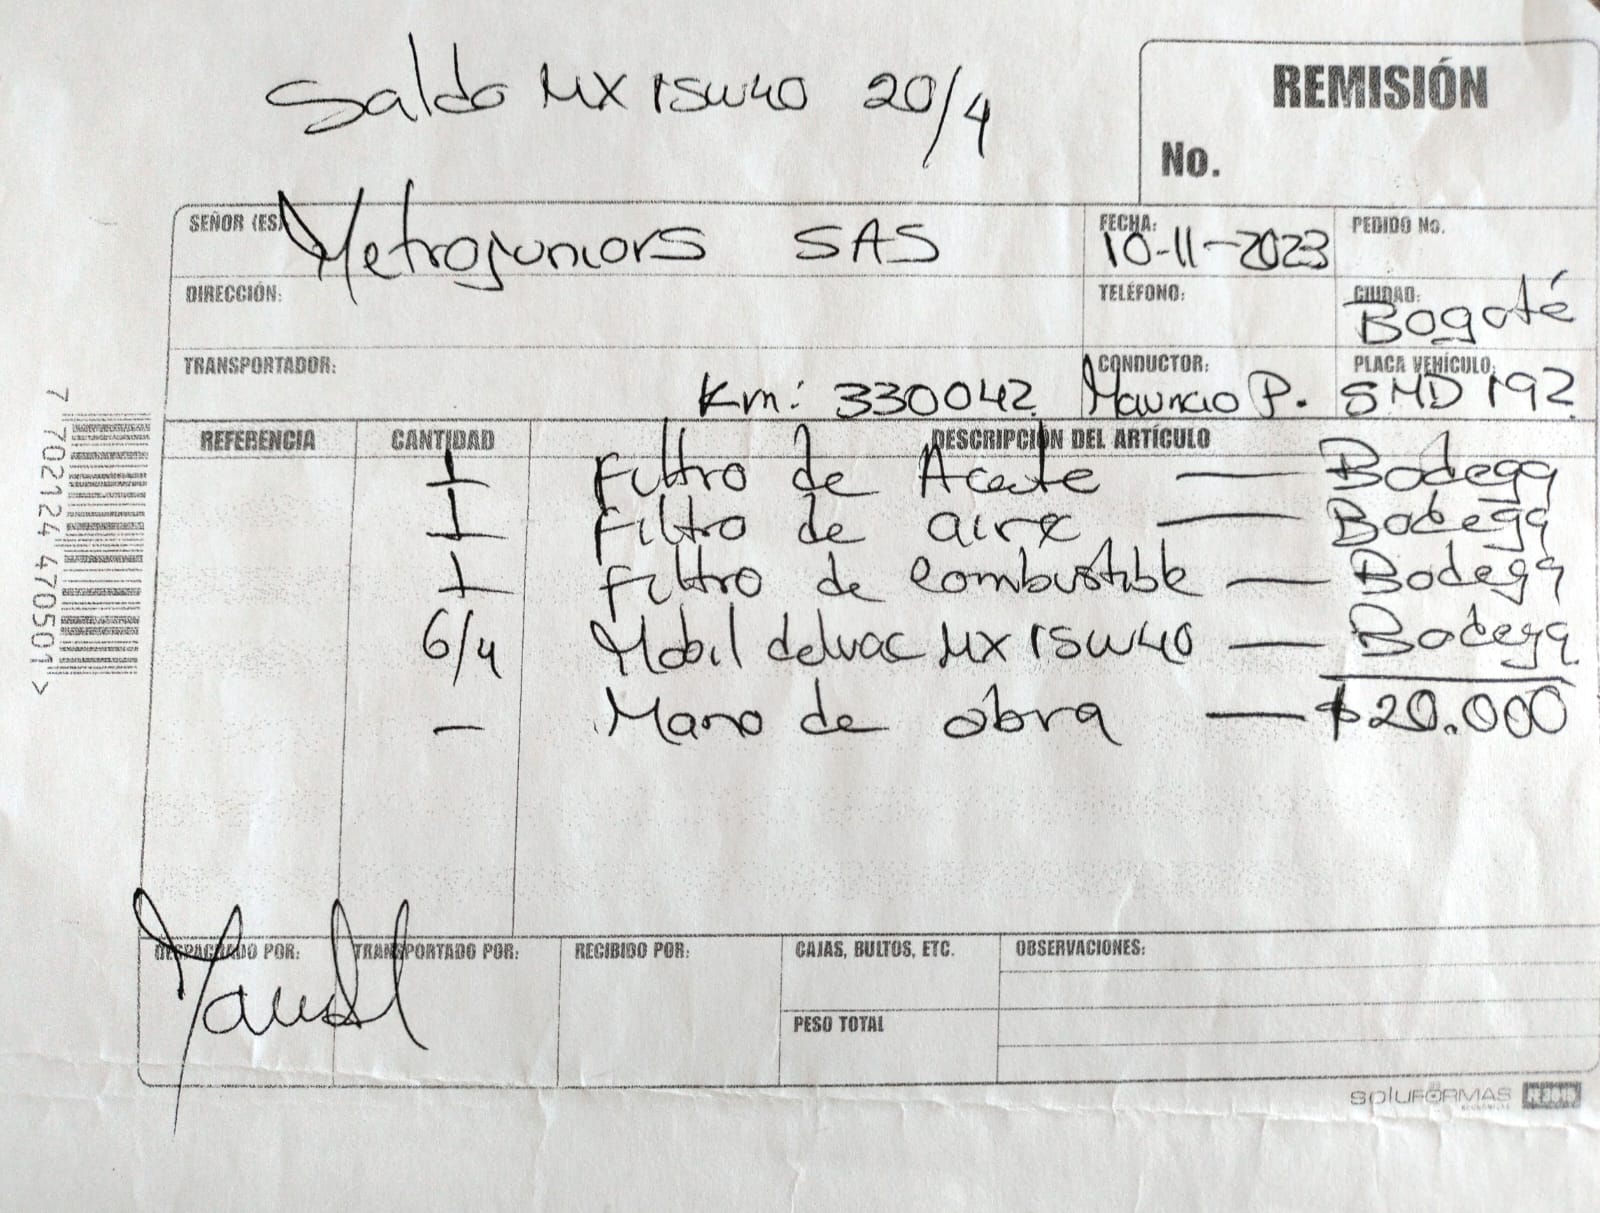 Saldo MX 15W40 20/4
REMISIÓN
No.
SEÑOR (ES) Metrojuniors SAS
FECHA: 10-11-2023
PEDIDO No.
DIRECCIÓN:
TELÉFONO:
CIUDAD: Bogotá
TRANSPORTADOR: Km: 330042
CONDUCTOR: Mauricio P.
PLACA VEHÍCULO: SMD 192
REFERENCIA CANTIDAD DESCRIPCIÓN DEL ARTÍCULO
1 Filtro de Aceite — Bodega
1 Filtro de aire — Bodega
1 Filtro de Combustible — Bodega
6/4 Mobil delvac MX 15W40 — Bodega
- Mano de obra — $20.000
7 702124 470501 >
DESPACHADO POR: TRANSPORTADO POR: RECIBIDO POR: CAJAS, BULTOS, ETC. OBSERVACIONES:
PESO TOTAL
SOLUFORMAS